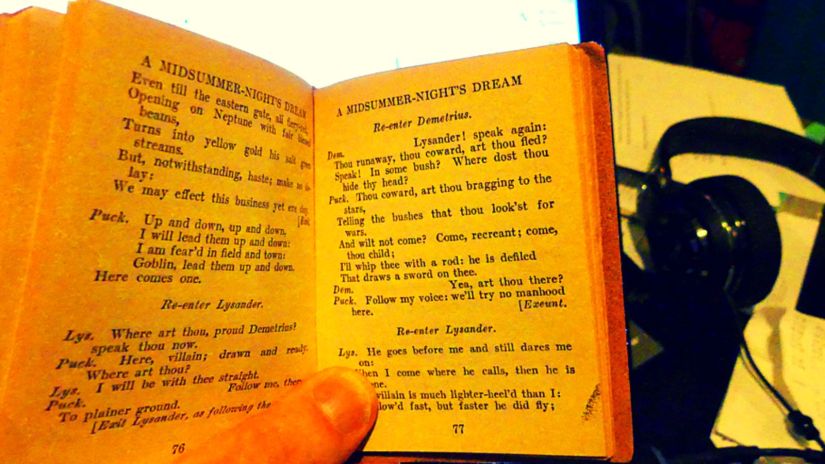 A MIDSUMMER-NIGHT'S DREAM
Even till the eastern gate, all fiery-red,
Opening on Neptune with fair blessed
beams,
Turns into yellow gold his salt green
streams.
But, notwithstanding, haste; make no
lay:
We may effect this business yet ere day.
[Exit
Puck. Up and down, up and down,
I will lead them up and down:
I am fear'd in field and town:
Goblin, lead them up and down.
Here comes one.
Re-enter Lysander.
Lys. Where art thou, proud Demetrius?
speak thou now.
Puck. Here, villain; drawn and ready.
Where art thou?
Lys. I will be with thee straight.
Puck. Follow me, then
To plainer ground.
[Exit Lysander, as following the
76
A MIDSUMMER-NIGHT'S DREAM
Re-enter Demetrius.
Dem. Lysander! speak again:
Thou runaway, thou coward, art thou fled?
Speak! In some bush? Where dost thou
hide thy head?
Puck. Thou coward, art thou bragging to the
stars,
Telling the bushes that thou look'st for
wars.
And wilt not come? Come, recreant; come,
thou child;
I'll whip thee with a rod: he is defiled
That draws a sword on thee.
Dem. Yea, art thou there?
Puck. Follow my voice: we'll try no manhood
here. [Exeunt.
Re-enter Lysander.
Lys. He goes before me and still dares me
on:
I come where he calls, then he is
villain is much lighter-heel'd than I:
fast, but faster he did fly;
77